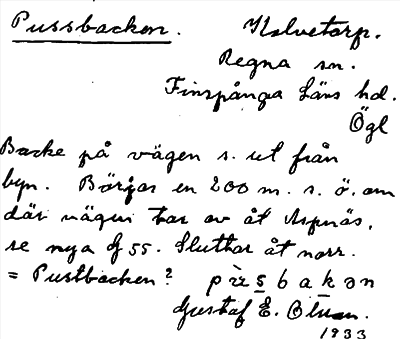 Pussbacken. Kalvetorp.
Regna sn.
Finspånga läns hd.
Ögl
Backe på vägen s. ut från
byn. Börjar en 200 m. s. ö. om
där vägen tar av åt Aspnäs,
se nya G 55. Sluttar åt norr.
= Pustbacken?
Gustaf E.
1933